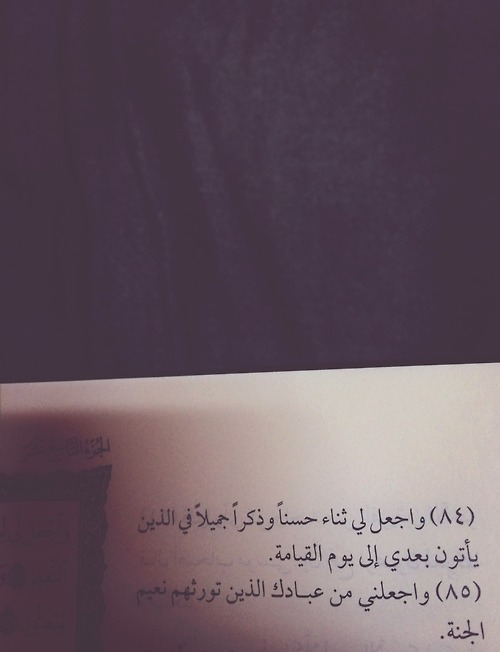 (٨٤) واجعل لي ثناء حسناً وذكراً جميلاً في الذين
يأتون بعدي إلى يوم القيامة.
(٨٥) واجعلني من عبـادك الذين تورثهم نعيم
الجنة.